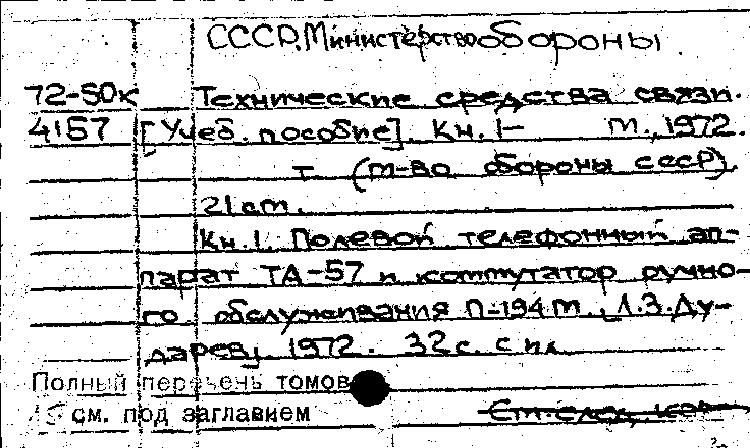 СССР. Министерство обороны.
72-50к Технические средства связи.
4157 [Учеб. пособие]. Кн. 1- М., 1972.
т (М-во обороны СССР).
21 см.
Кн. 1. Полевой телефонный ап-
парат ТА-57 и коммутатор ручно-
го обслуживания П-194М. [Л.З. Ду-
дарев], 1972. 32 с. с ил.
Полный перечень томов
см. под заглавием